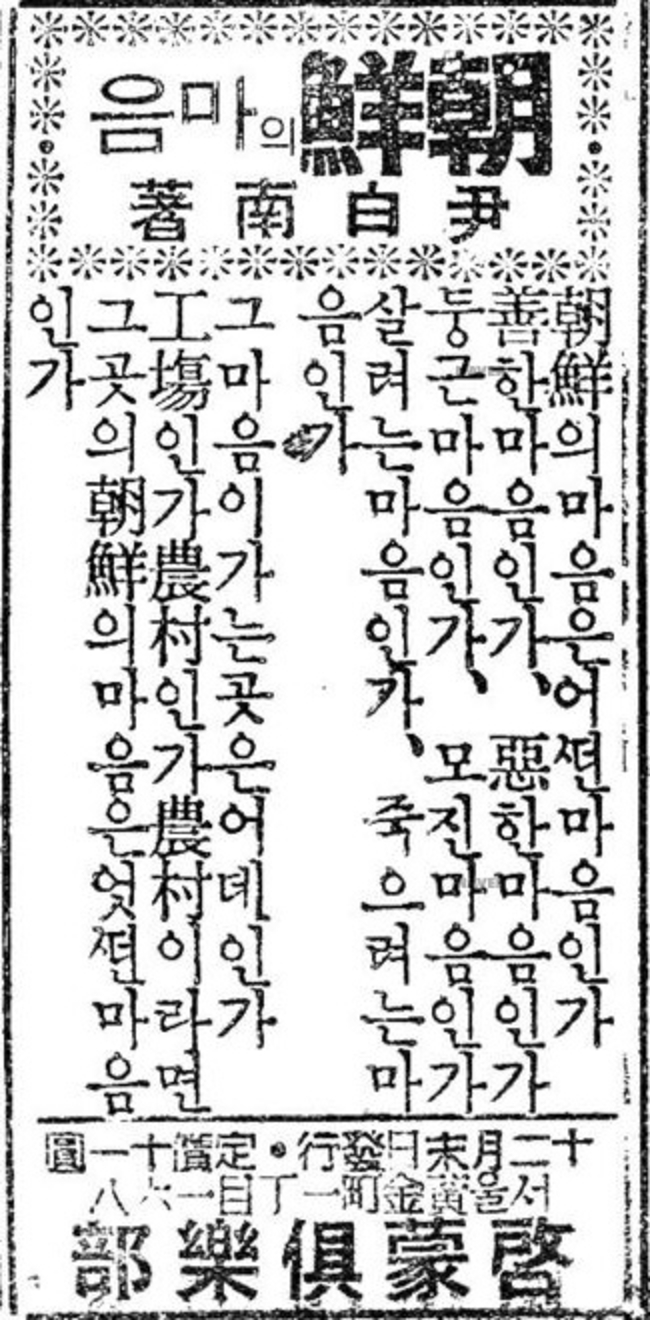 朝鮮의마음
尹白南著
朝鮮의마음은어떤마음인가
善한마음인가、惡한마음인가
둥근마음인가、모진마음인가
살려는마음인가、죽으려는마
음인가
그마음이가는곳은어데인가
工場인가農村인가農村이라면
그곳의朝鮮의마음은엇떤마음
인가
十二月末日發行・定價十一圓
서울黃金町一丁目一六八
啓蒙俱樂部